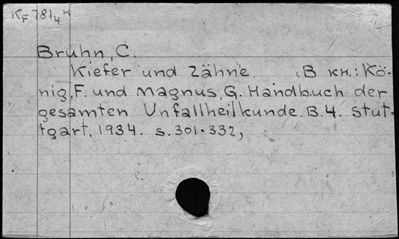 KF 781/4
Bruhn, C.
Kiefer und Zähne. (В кн.: Kö-
nig, F. und Magnus, G. Handbuch der
gesamten Unfallheilkunde. B.4. Stut-
tgart, 1934. s. 301-332,